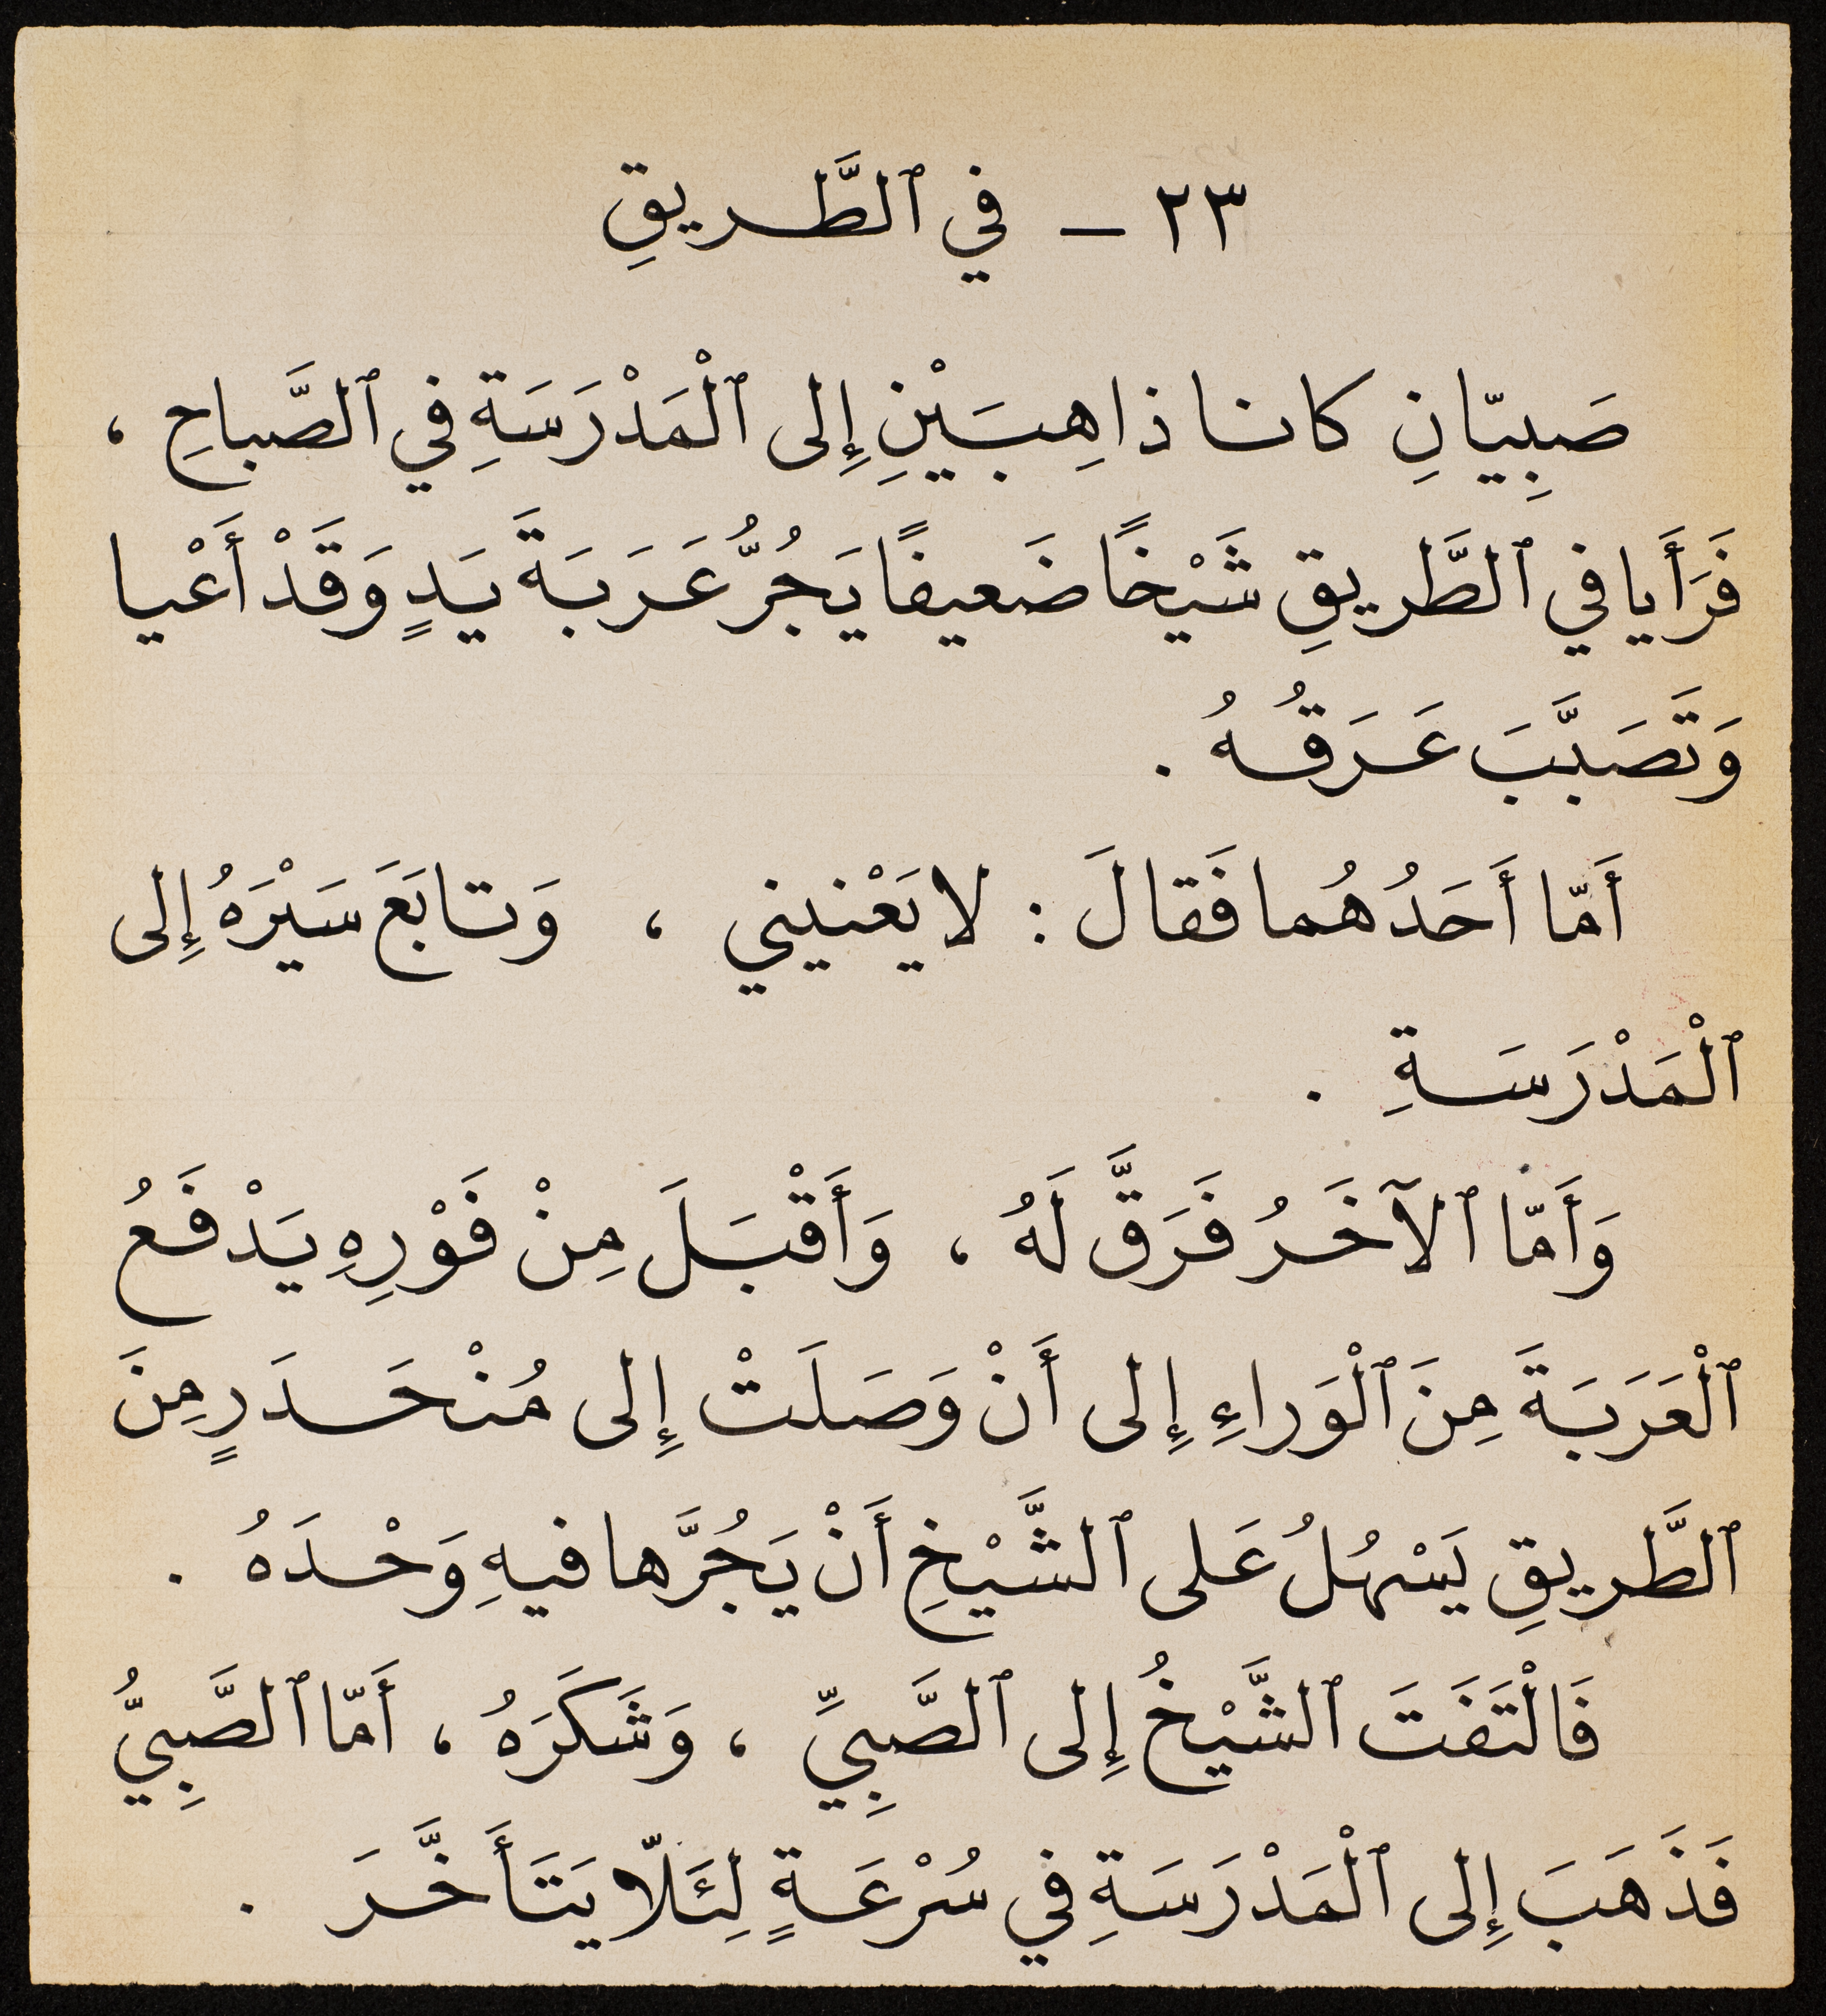 ٢٣ ـ في ٱلطَّريقِ
صَبِيّانِ كانا ذاهِبَيْنِ إِلى ٱلْمَدْرَسَةِ في ٱلصَّباحِ ،
فَرَأَيا في ٱلطَّريقِ شَيْخًا ضَعيفًا يَجُرُّ عَرَبَةَ يَدٍ وَقَدْ أَعْيا
وَتَصَبَّبَ عَرَقُهُ .
أَمّا أَحَدُهُما فَقالَ : لا يَعْنيني ، وَتابَعَ سَيْرَهُ إِلى
ٱلْمَدْرَسَةِ .
وَأَمّا ٱلآخَرُ فَرَقَّ لَهُ ، وَأَقْبَلَ مِنْ فَوْرِهِ يَدْفَعُ
ٱلْعَرَبَةَ مِنَ ٱلْوَراءِ إِلى أَنْ وَصَلَتْ إِلى مُنْحَدَرٍ مِنَ
ٱلطَّريقِ يَسْهُلُ عَلى ٱلشَّيْخِ أَنْ يَجُرَّها فيهِ وَحْدَهُ .
فَالْتَفَتَ ٱلشَّيْخُ إِلى ٱلصَّبِيِّ ، وَشَكَرَهُ ، أَمّا ٱلصَّبِيُّ
فَذَهَبَ إِلى ٱلْمَدْرَسَةِ في سُرْعَةٍ لِئَلّا يَتَأَخَّرَ .